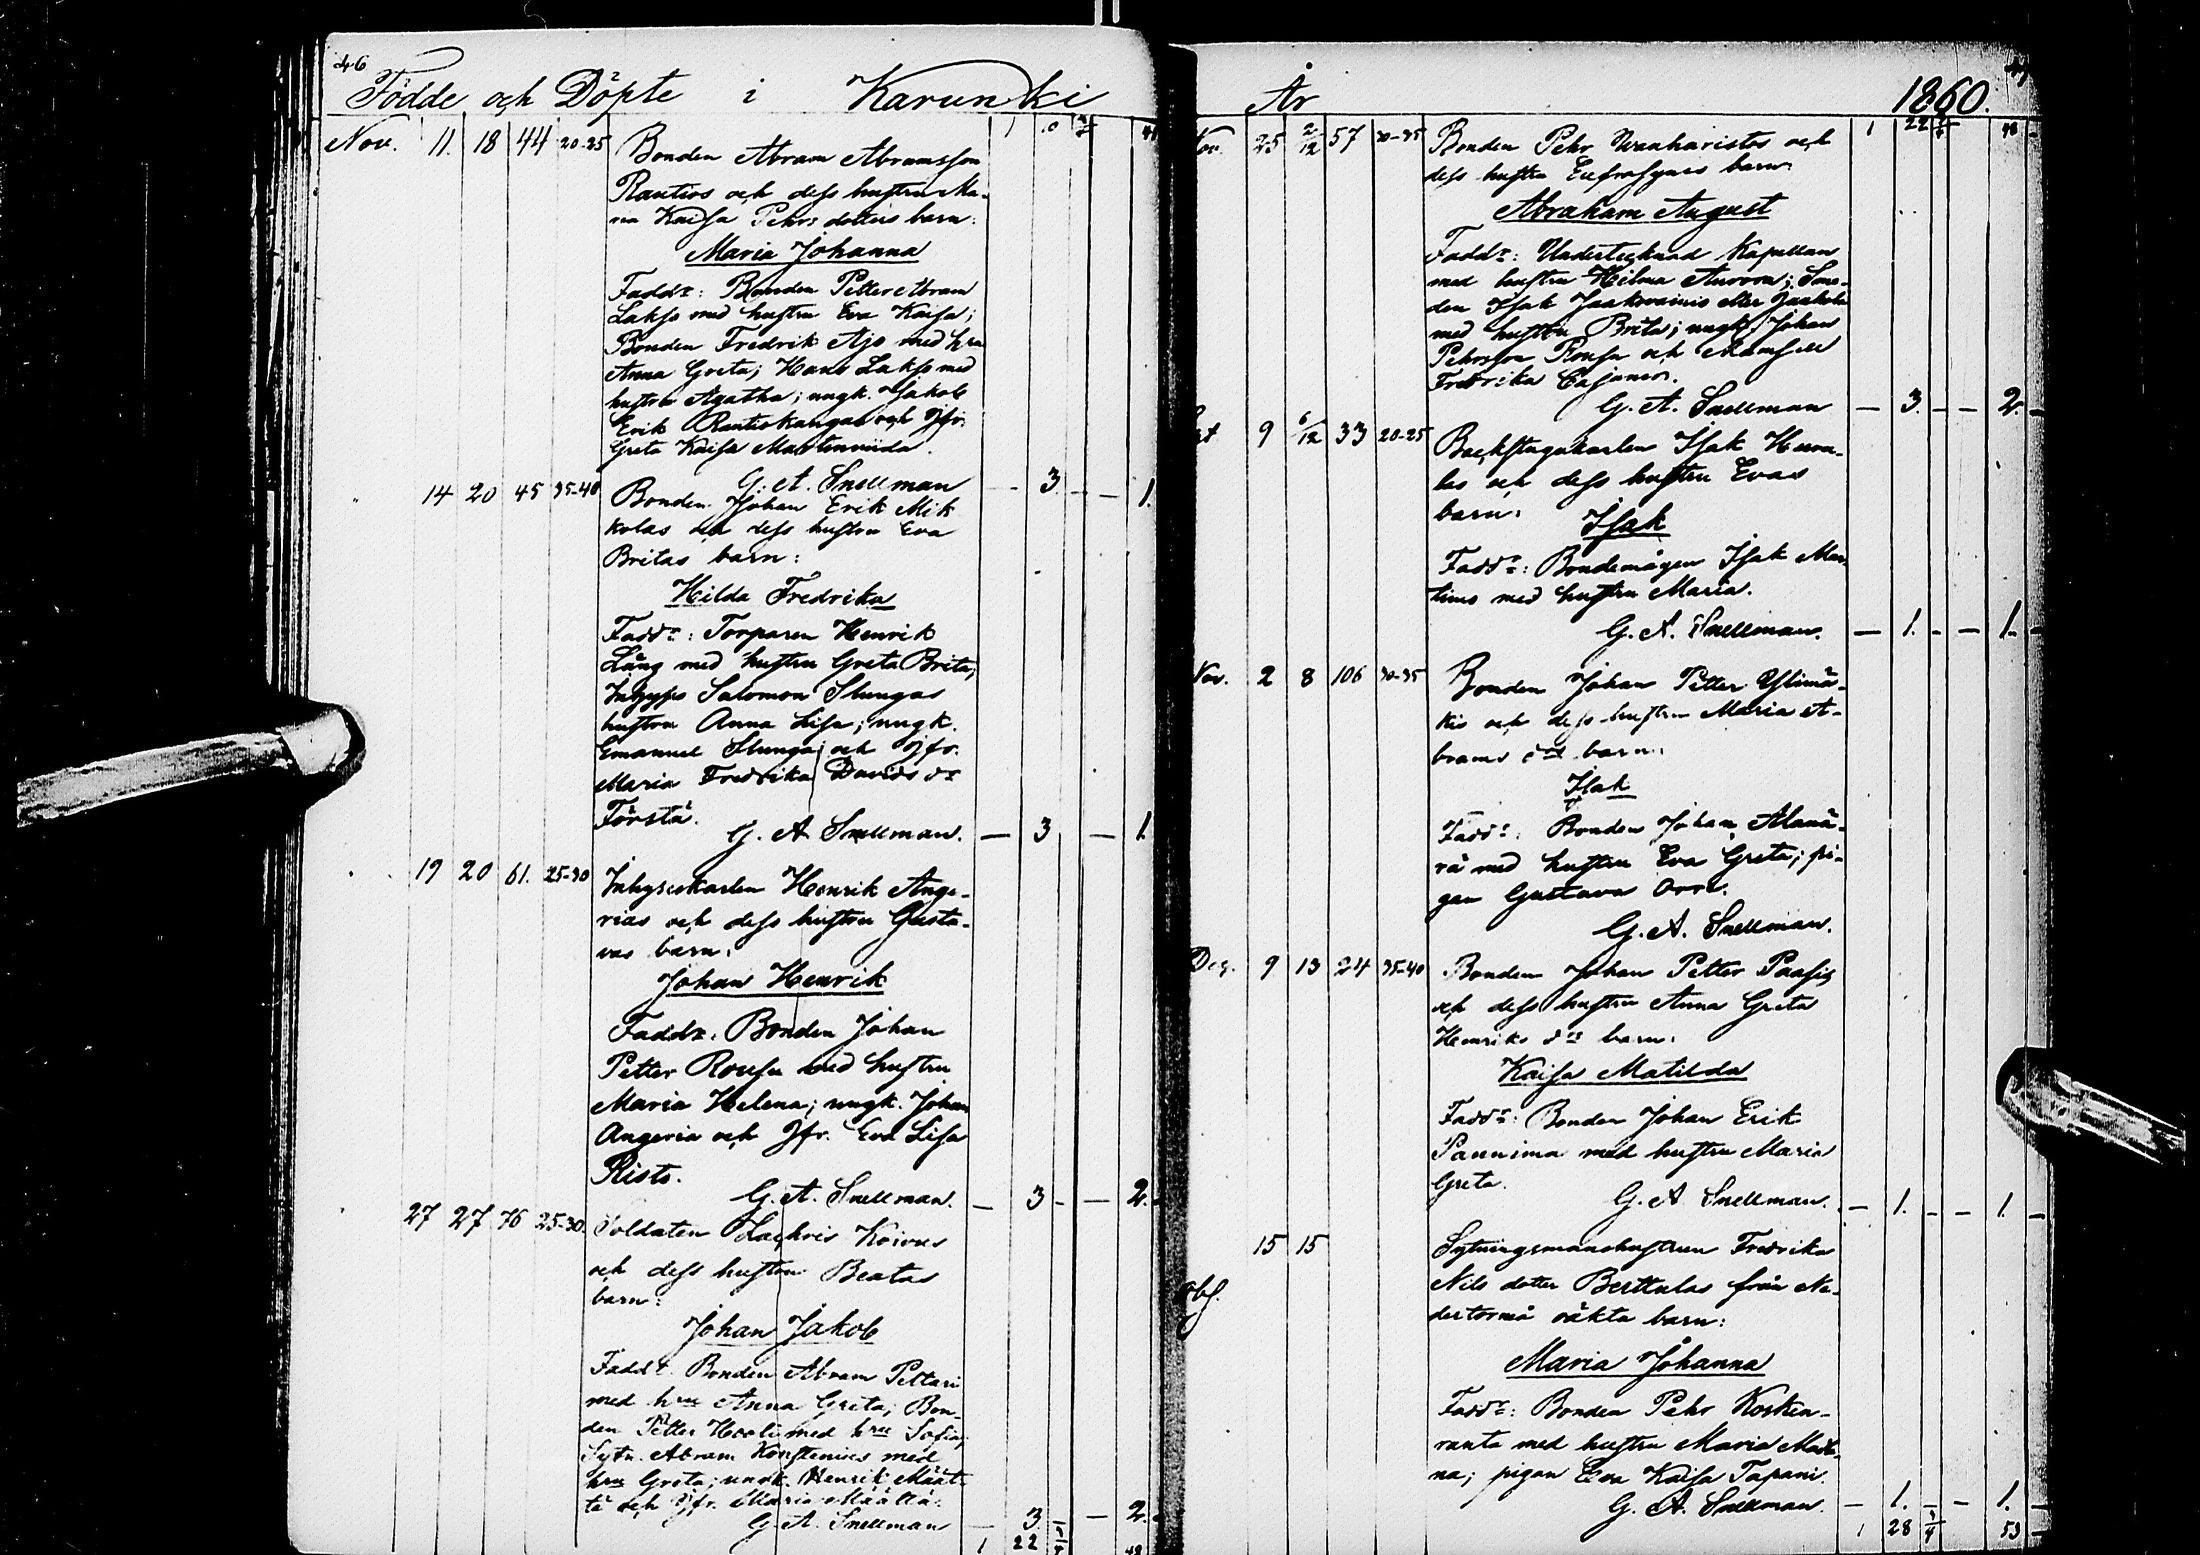 46
Födde och Döpte i Karunki
Nov. 11. 18 44 20-25
Bonden Abram Abramsson
Rautios och dess hustru Ma-
ria Kaisa Pehrs dotters barn:
Maria Johanna
Faddr: Bonden Petter Abram
Lakso med hustru Eva Kaisa;
Bonden Fredrik Ajo med hru
Anna Greta; Hans Lakso med
hustru Agatha; ungk. Jakob
Erik Rautiokangas och Jfr.
Greta Kaisa
G. A. Snellman — 3. — — 1.
14 20 45 35-40
Bonden Johan Erik Mik
kolas och dess hustru Eva
Britas barn:
Hilda Fredrika
Faddr: Torparen Henrik
Lång med hustru Greta Brita;
Salomon Slungas
hustru Anna Lisa; ungk.
Emanuel Slunga och Jfr.
Maria Fredrika Davids dr
Förstä.
G. A. Snellman. — 3 — 1.
19 20 61. 25-30
Inhyseskarlen Henrik Ange-
rias och dess hustru Gusta-
vas barn:
Johan Henrik
Faddr: Bonden Johan
Petter Rousu med hustru
Maria Helena; ungk. Johan
Angeria och Jfr. Eva Lisa
Risto.
G. A. Snellman. — 3 - — 2. -
27 27 76 25-30.
Soldaten Zachris Koivus
och dess hustru Beatas
barn:
Johan Jakob
Faddr. Bonden Abram Pettari
med hru Anna Greta; Bon-
den Petter Hooli med hru Sofia;
Sytn. Abram Konstenius med
hru Greta; ungk. Henrik Määt-
tä och Jfr. Maria Määttä.
G. A. Snellman — 3. — 2. -
1 22 48
År 1860.
Nov. 25 2/12 57 30-35 1 22 48 -
Bonden Pehr Wanharistos och
dess hustru Eufrosynes barn:
Abraham August
Faddr: Undertecknad Kapellan
med hustru Hilma Aurora; Sme-
den Isak Jaakovainis eller Jaakola
med hustru Brita; ungk. Johan
Pehrsson Rousu och Mamsell
Fredrika Cajanus.
G. A. Snellman — 3. - — 2. —
9 6/12 33 20-25
Backstugukarlen Isak Herva-
las och dess hustru Evas
barn:
Isak
Faddr: Bondemågen Isak Mar-
timo med hustru Maria.
G. A. Snellman. — 1. - — 1. —
Nov. 2 8 106 30-35
Bonden Johan Petter Ylimä-
kis och dess hustru Maria A-
brams drs barn:
Isak
Faddr: Bonden Johan Alanä-
rä med hustru Eva Greta; pi-
gan Gustava Orre.
G. A. Snellman.
Dec. 9 13 24 35-40
Bonden Johan Petter Paasis
och dess hustru Anna Greta
Henriks drs barn:
Kaisa Matilda
Faddr: Bonden Johan Erik
Pannima med hustru Maria
Greta.
G. A. Snellman. — 1. - — 1. —
15 15
Sytningsmanshustrun Fredrika
Nils dotter Berttulas från Ne-
dertorneå oäkta barn:
Maria Johanna
Faddr: Bonden Pehr Kosken-
ranta med hustru Maria
pigan Eva Kaisa Tapani.
G. A. Snellman. — 1. - — 1. —
1 28 53 —